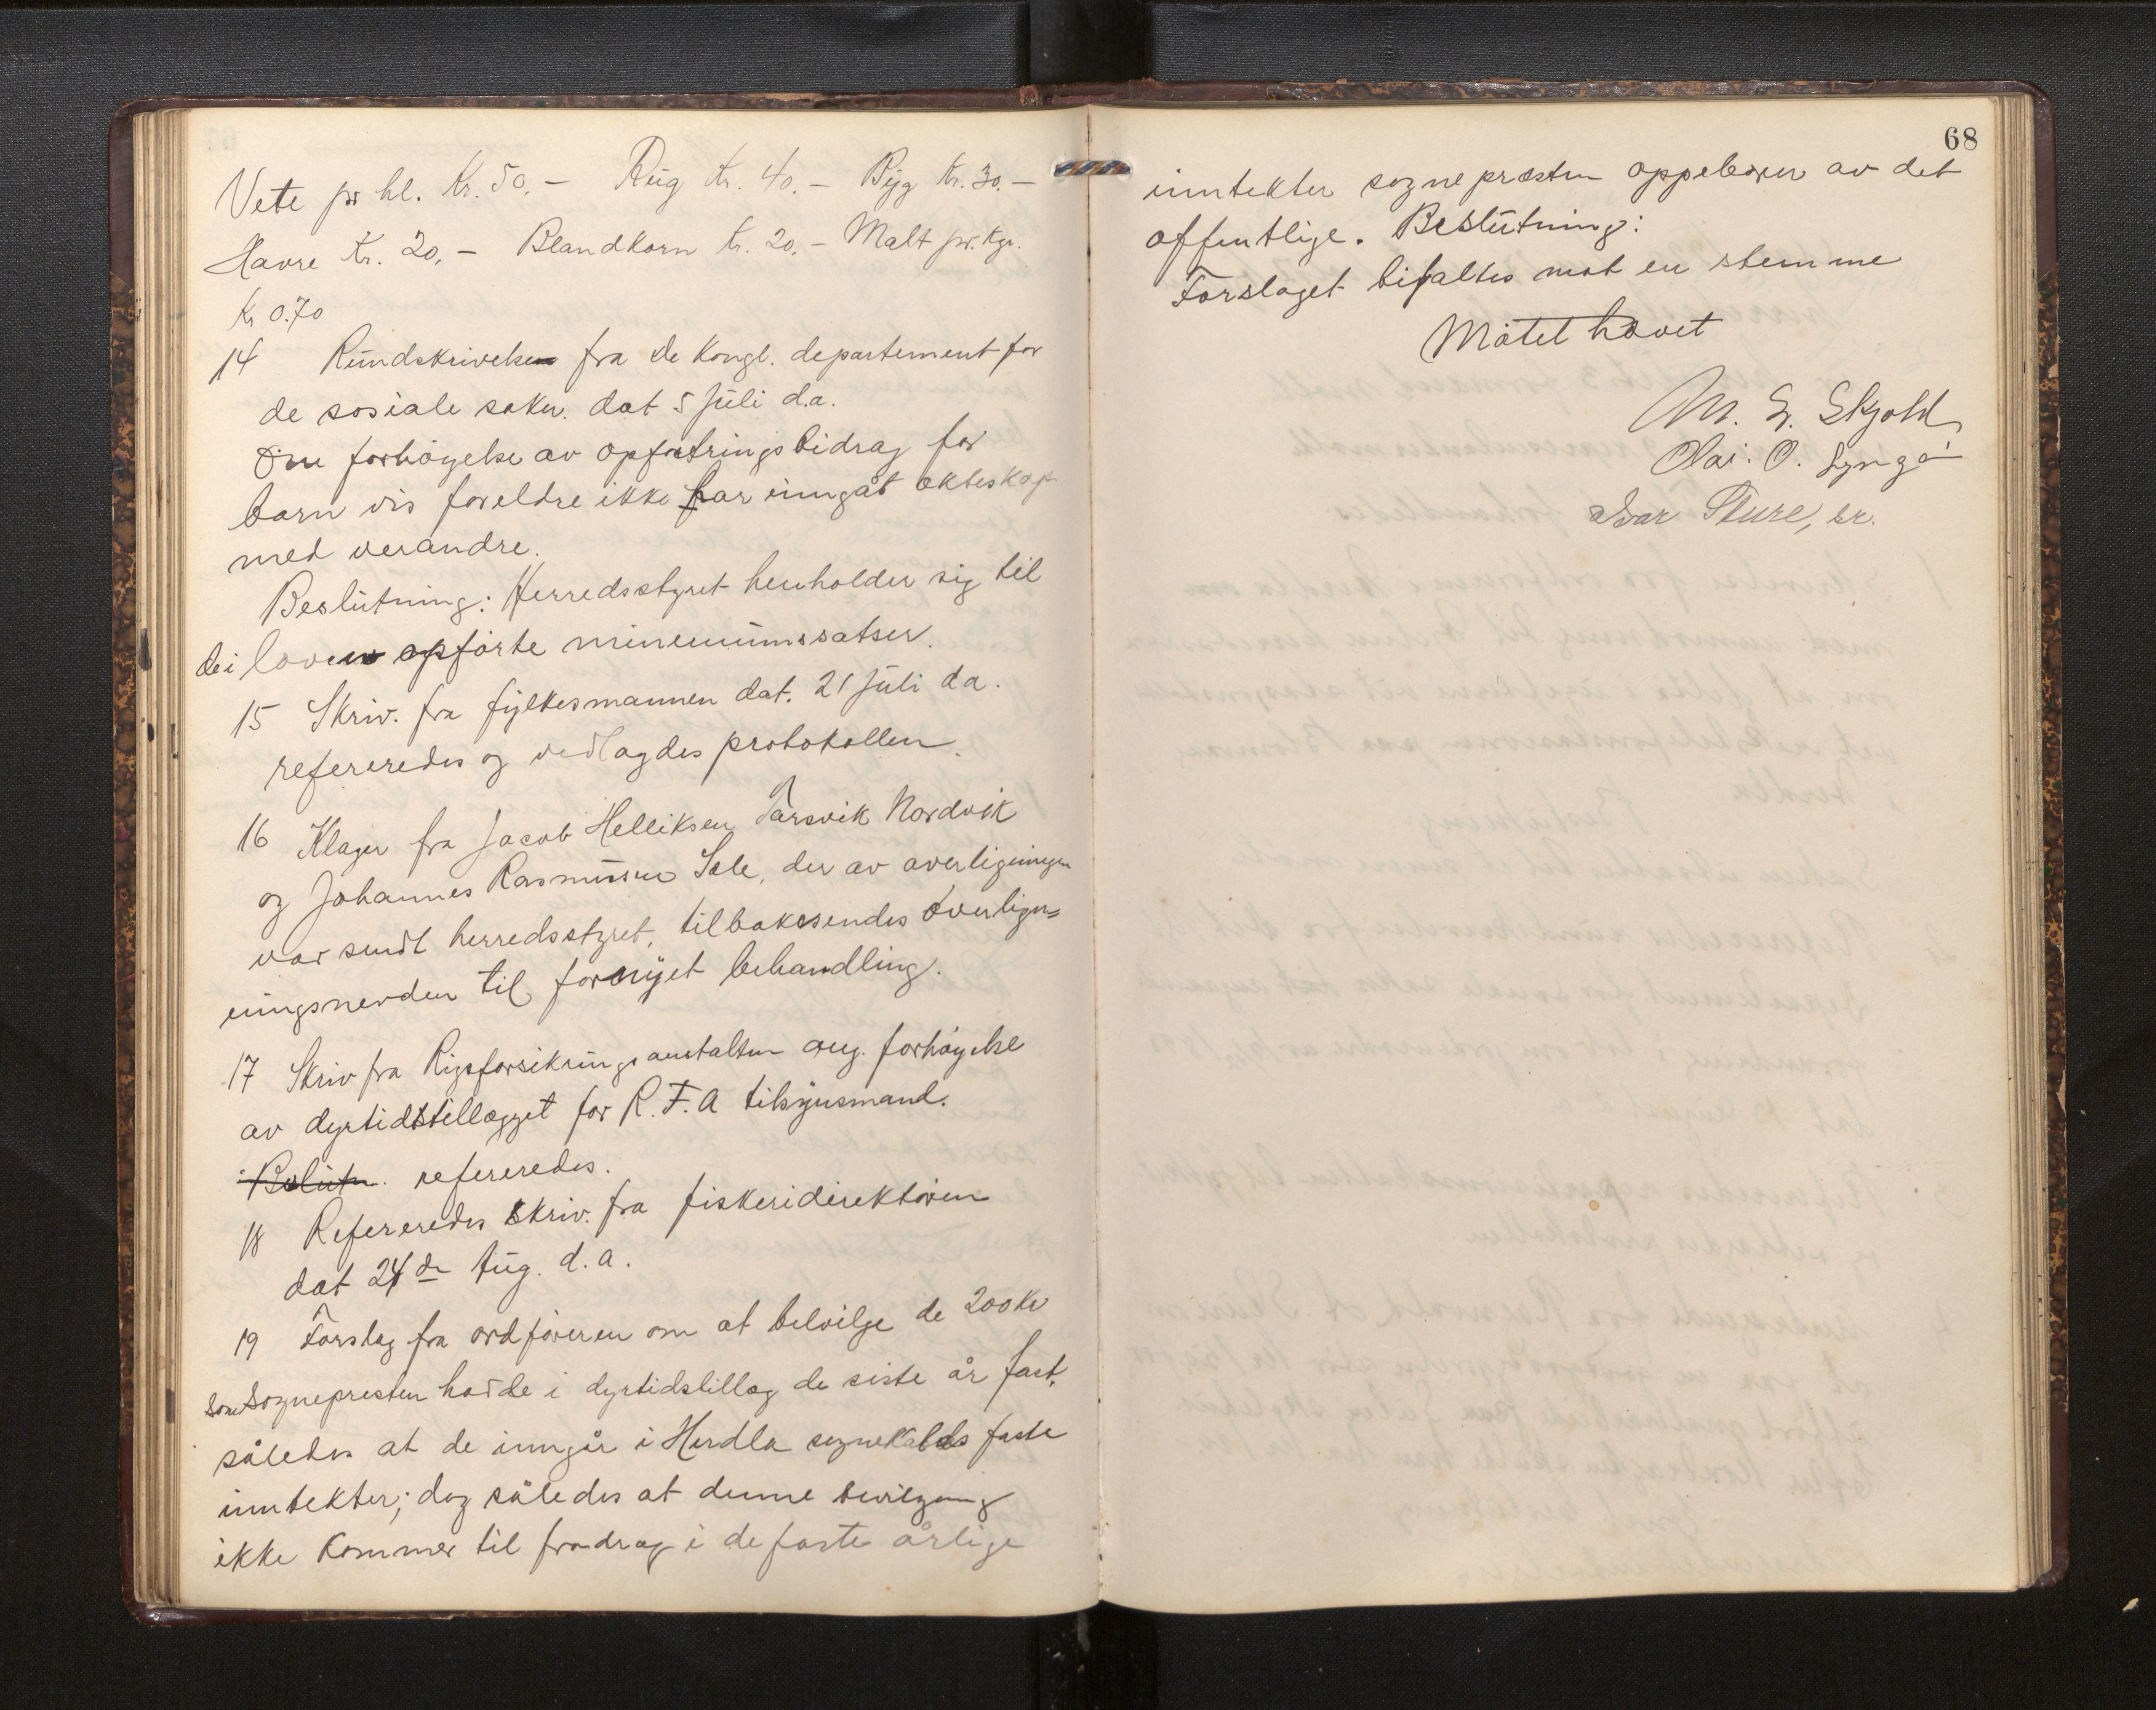 Vete pr hl. Kr. 50.- Rug Kr. 40.- Byg Kr. 30.-
Havre Kr. 20.- Blandkorn Kr. 20.- Malt pr. kgr.
Kr 0.70
14 Rundskrivelse fra de kongl. departement for
de sosiale saker. dat 5 juli d.a.
Om forhöyelse av opfostringsbidrag for
barn vis foreldre ikke har inngåt ekteskap
med verandre.
Beslutning: Herredsstyret henholder sig til
de i loven opförte minemumssatser.
15 Skriv. fra fylkesmannen dat. 21 juli da.
refereredes og vedlagdes protokollen.
16 Klager fra Jacob Helliksen Tarsvik Nordvik
og Johannes Rasmussen Sæle, der av overligningen
var sendt herredsstyret, tilbakesendes overlign=
ingsnevnden til fornyet behandling.
17 Skriv fra Rigsforsikringsanstalten ang. forhöyelse
av dyrtidstillægget for R.F.A tilsynsmand.
Beslutn. refereredes.
18 Refereredes skriv. fra fiskeridirektören
dat 24de Aug. d.a.
19 Forslag fra ordföreren om at belvilge de 200 Kr
som Sognepresten hadde i dyrtidstillæg de siste år fast,
således at de inngår i Herdla sognekalds faste
inntekter; dog således at denne bevilgning
ikke kommer til fradrag i de faste årlige
68
inntekter sognepræsten oppebærer av det
offentlige. Beslutning:
Forslaget bifaltes mot en stemme
Mötet hævet
M. E. Skjold
Olai. O. Lyngö
Ivar Sture, sr.